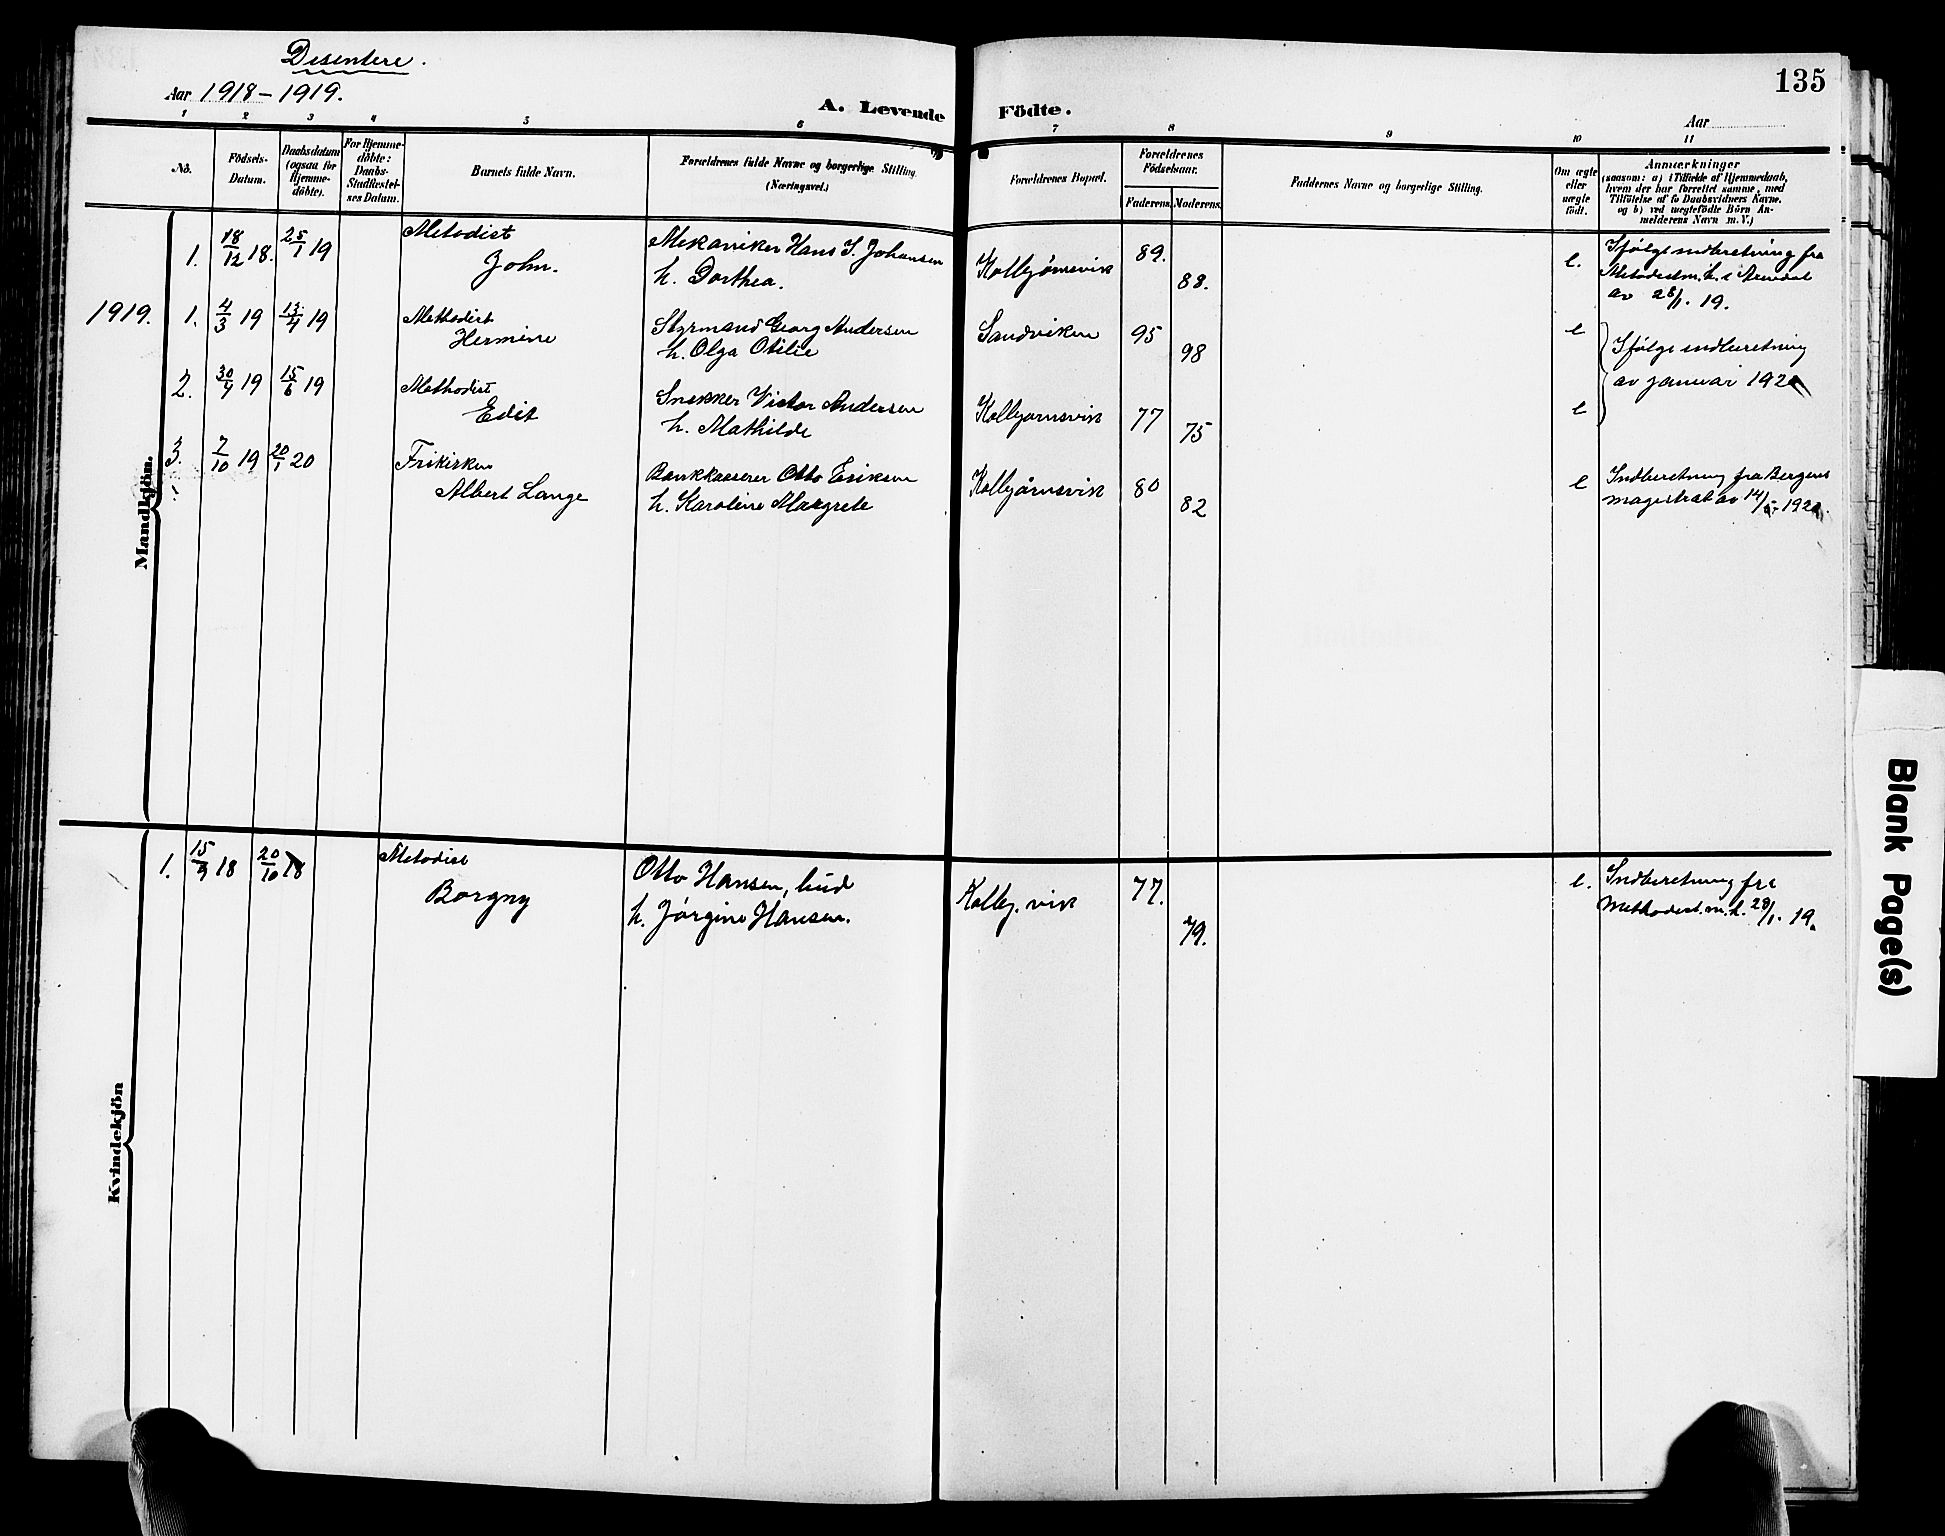 Desentere.
135
Aar 1918-1919.
A. Levende Födte.
Aar
1 2 3 4 5 6 7 8 9 10 11
No.
Födsels-
Datum.
Daabsdatum
(ogsaa for
Hjemme-
döbte).
For Hjemme-
döbte:
Daabs-
Stadfæstel-
ses Datum.
Barnets fulde Navn.
Forældrenes fulde Navne og borgerlige Stilling.
(Næringsvei.)
Forældrenes Bopæl.
Forældrenes
Födselsaar.
Faderens. Moderens.
Faddernes Navne og borgerlige Stilling.
Om ægte
eller
uægte
födt.
Anmærkninger
(saasom: a) i Tilfælde af Hjemmedaab,
hvem der har forrettet samme, med
Tilföielse af to Daabsvidners Navne.
og b) ved uægtefödte Börn An-
melderens Navn m. V.)
Mandkjön.
1. 18/12 18. 25/1 19 Metodist Mekaniker Hans I. Johansen Kolbjørnsvik 89. e. Ifølge indberetning fra
John. h. Dorthea. 88. Metodistm.h. i Arendal
av 28/1. 19.
1919. 1. 4/3 19 13/4 19 Methodist Styrmand Georg Andersen Sandviken 95 e Ifølge indberetning
Hermine h. Olga Otilie 98
2. 30/4 19 15/6 19 Methodist Snekker Victor Andersen Kolbjørnsvik 77 e av januar 192
Edit h. Mathilde 75
3. 7/10 19 20/1 20 Frikirken Bankkasserer Otto Eriksen Kolbjørnsvik 80 e Indberetning fra Bergens
Albert Lange h. Karoline Margrete 82 magistrat av 14/ 192
Kvindekjön
1. 15/9 18 20/10 18 Metodist Otto Hansen, bud Kolbj.vik 77. e. Indberetning fra
Borgny h. Jørgine Hansen. 79. Methodist.m.h. 28/1. 19.
Blank Page(s)